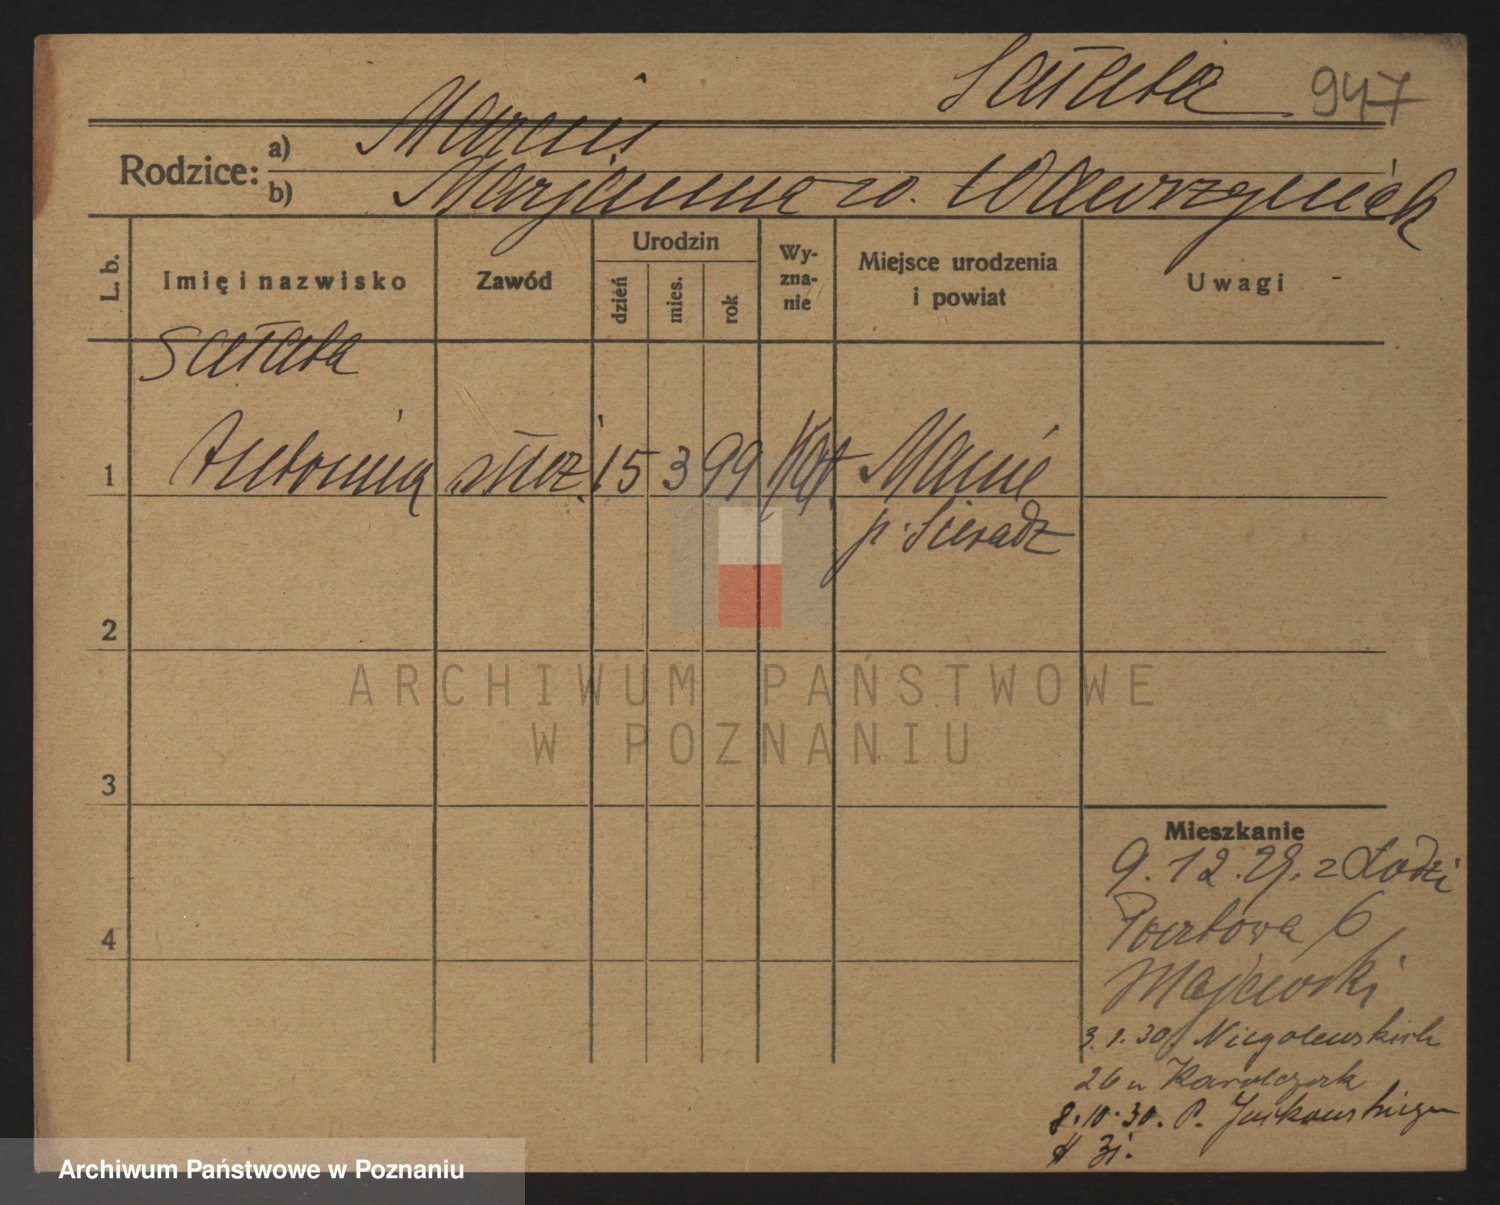 Sałata 947
Rodzice:
a) Marcin
b) Marjanna z Wawrzyniak
L. b.
Imię i nazwisko
Zawód
Urodzin
dzień
mies.
rok
Wy-
zna-
nie
Miejsce urodzenia
i powiat
Uwagi
Sałata
1 Antonina służ. 15 3 99 kat.
p. Sieradz
2
3
4
Mieszkanie
9.12.29. z Łodzi
Pocztowa 6
Majewski
3.1.30. Niegolewskich
26 u Karolczak
8.10.30. P.
31.
ARCHIWUM PAŃSTWOWE
W POZNANIU
Archiwum Państwowe w Poznaniu